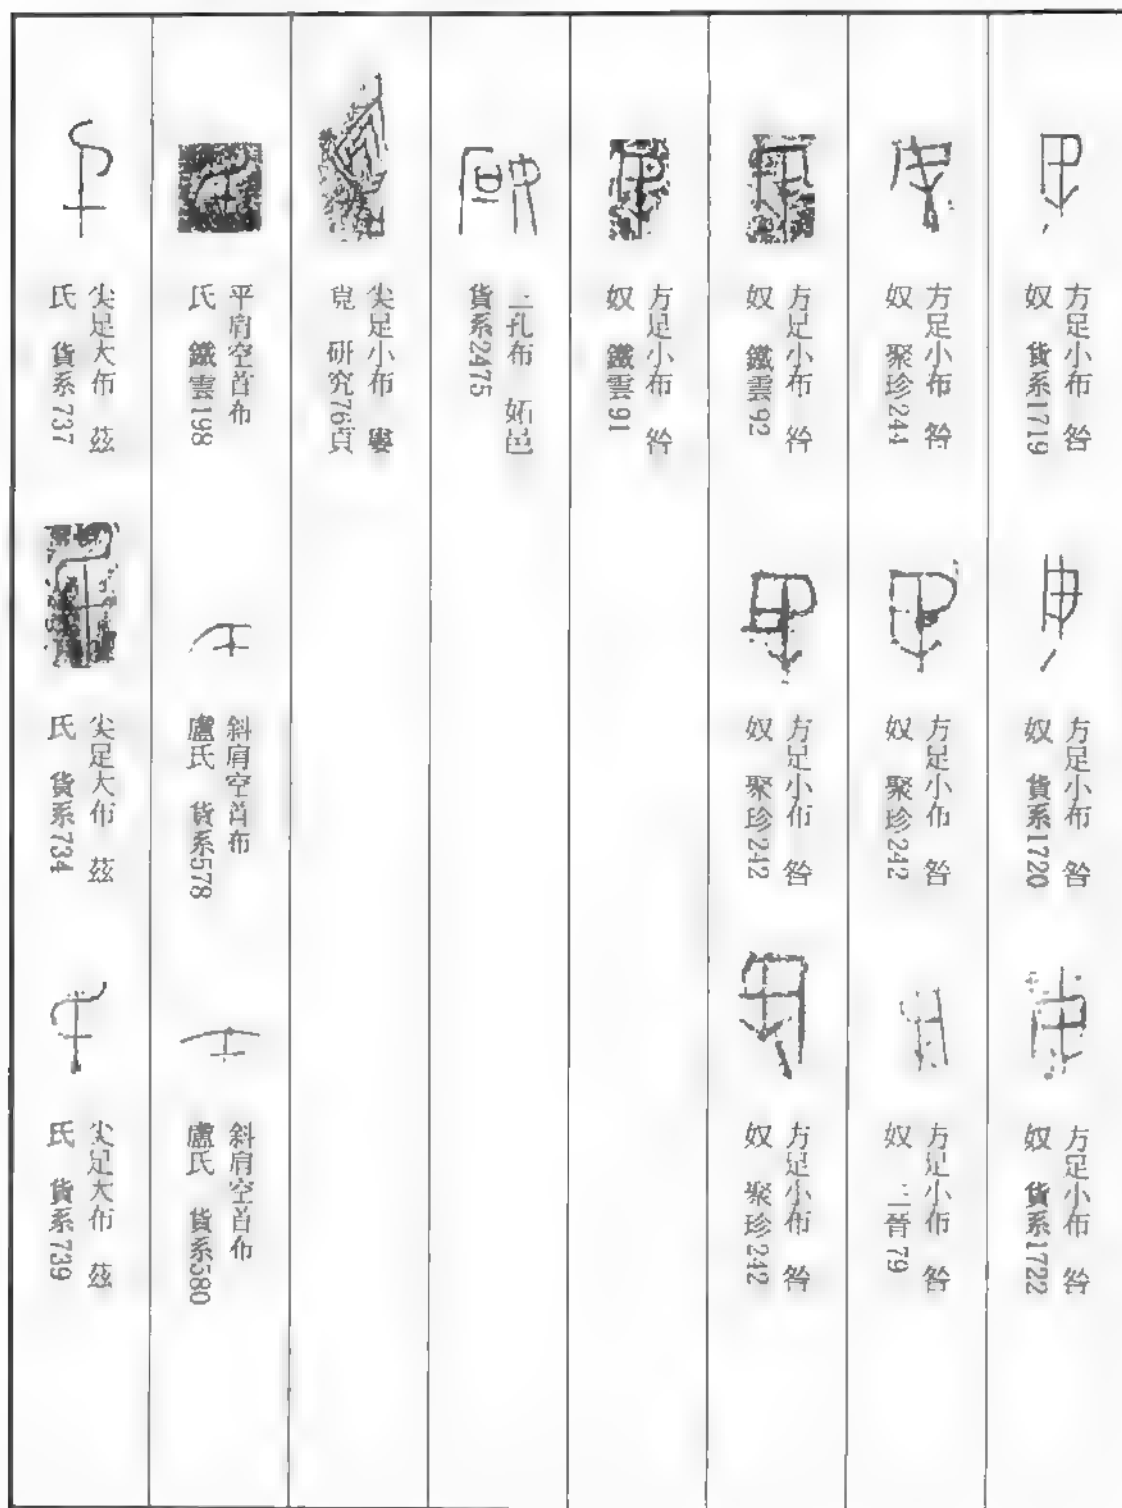 方足小布　咎
奴　貨系1719
方足小布　咎
奴　貨系1720
方足小布　咎
奴　貨系1722
方足小布　咎
奴　聚珍244
方足小布　咎
奴　聚珍242
方足小布　咎
奴　三晉79
方足小布　咎
奴　鐵雲92
方足小布　咎
奴　聚珍242
方足小布　咎
奴　聚珍242
方足小布　咎
奴　鐵雲91
三孔布　妬邑
貨系2475
尖足小布
研究76頁
平肩空首布
氏　鐵雲198
斜肩空首布
盧氏　貨系578
斜肩空首布
盧氏　貨系580
尖足大布　茲
氏　貨系737
尖足大布　茲
氏　貨系734
尖足大布　茲
氏　貨系739